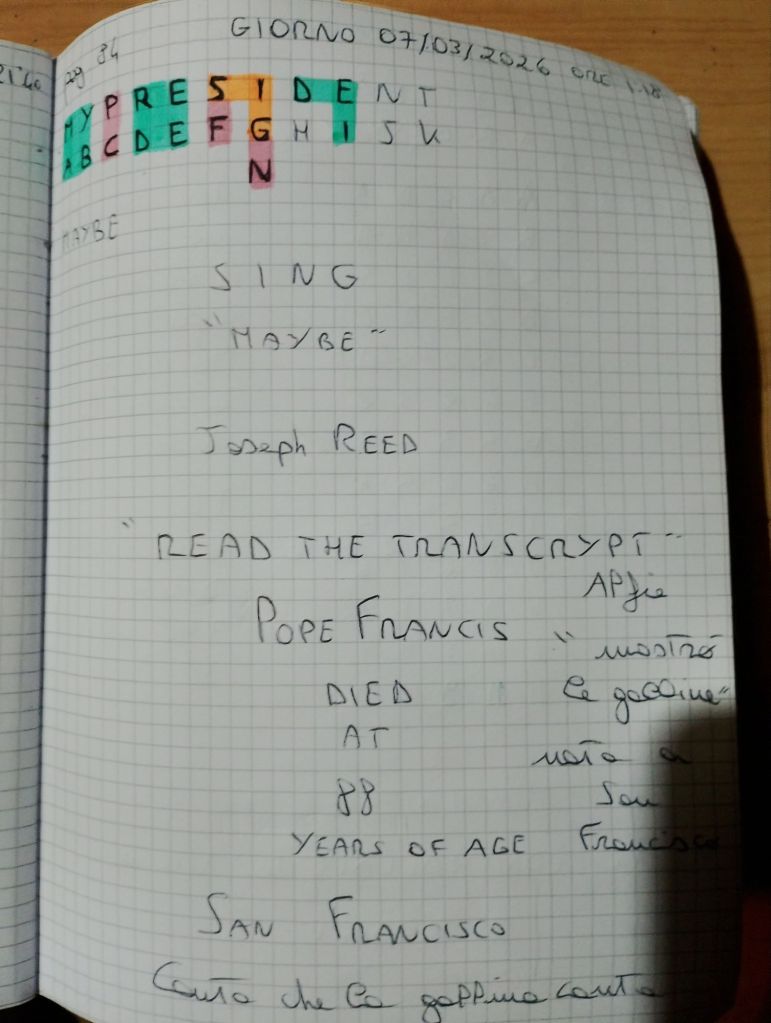 21:40
pag 84
GIORNO 07/03/2026 ORE 1.18
MYPRESIDENT
ABCDEFGHISK
N
MAYBE
SING
"MAYBE"
Joseph REED
"READ THE TRANSCRYPT"
POPE FRANCIS
DIED
AT
88
YEARS OF AGE
"mostrò
le galline"
nata a
San
Francisco
SAN FRANCISCO
Canta che la gallina canta